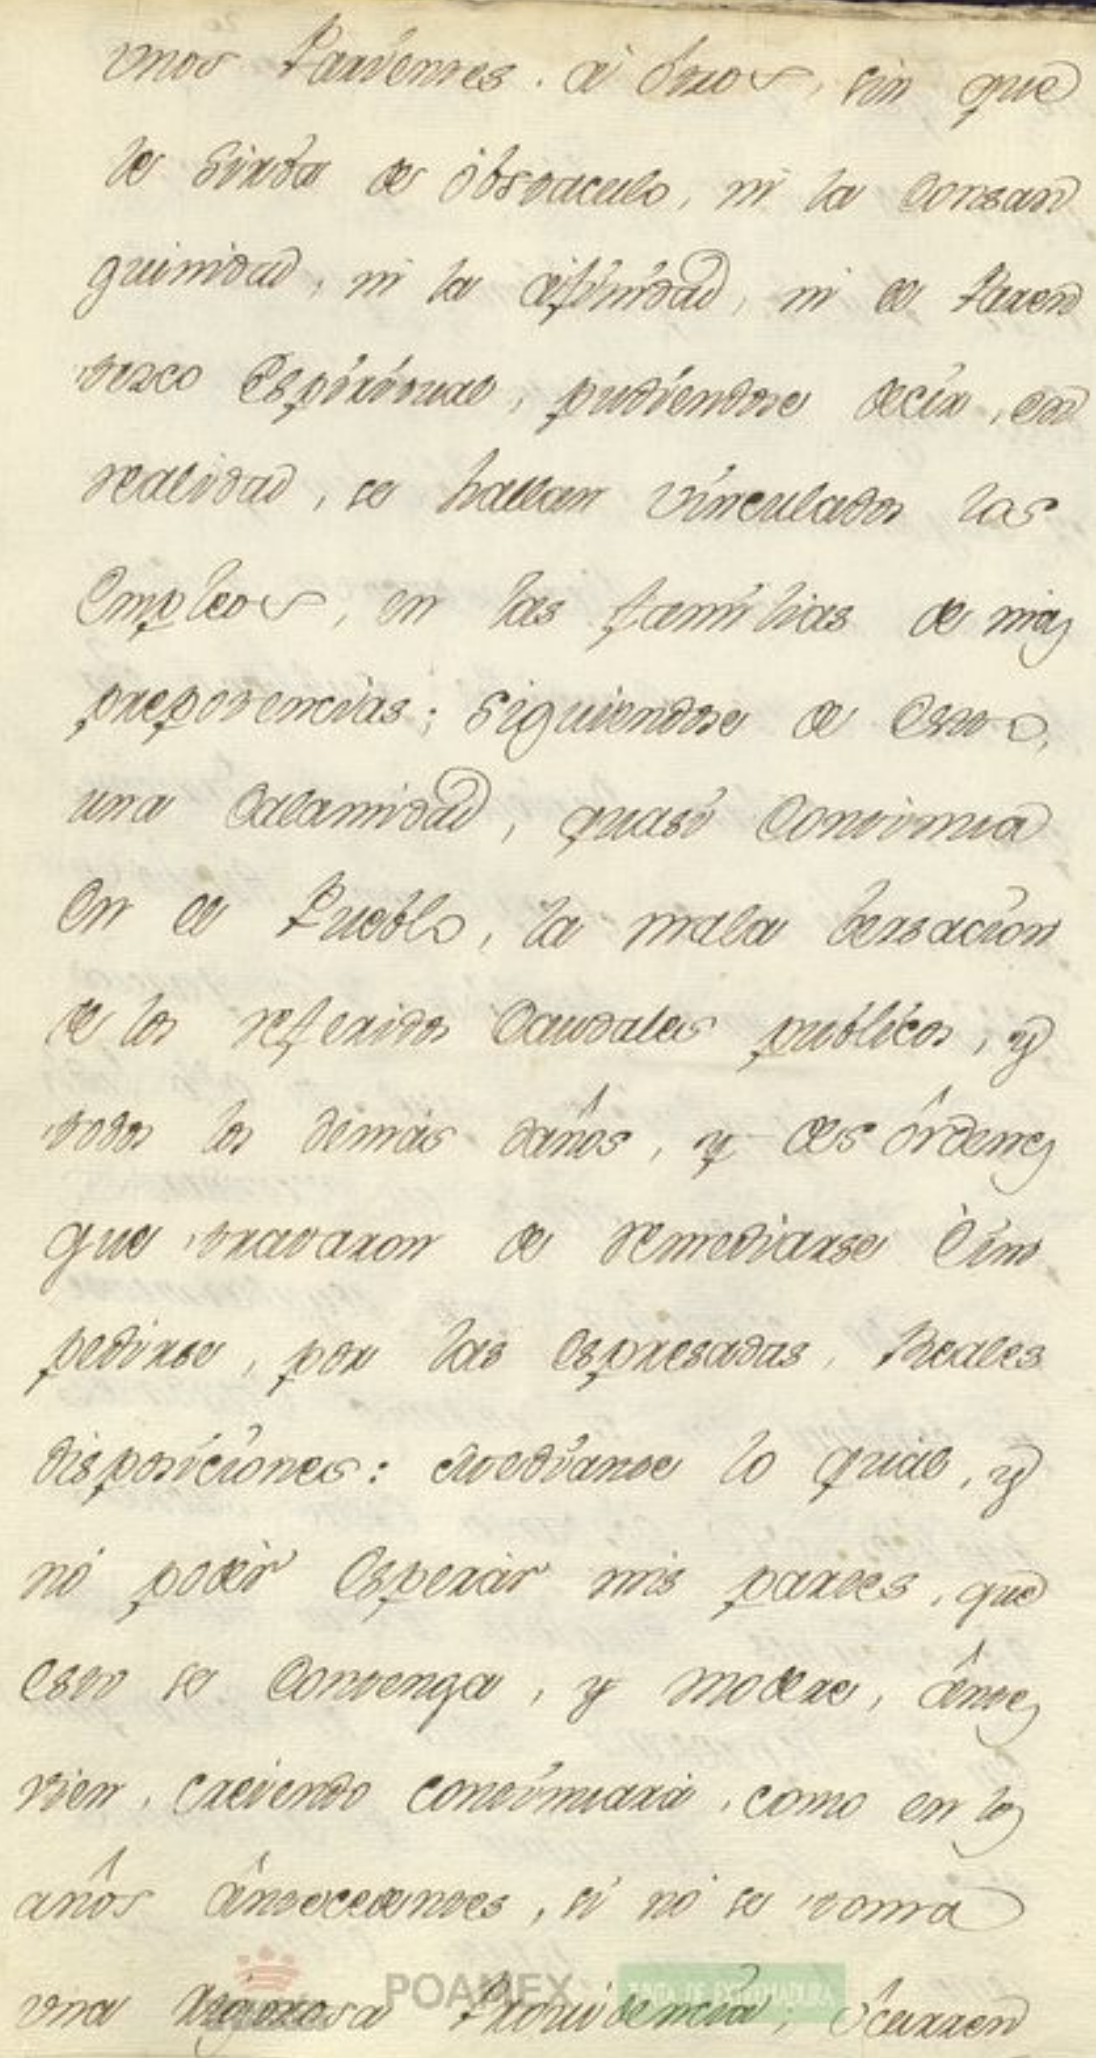 unos Parientes. â ótros, sin que
le sirba de óbstaculo, ni la consan
guinidad, ni la afinidad, ni el Paren
tezco Espiritual, pudiendose decir, en
realidad, se hallan vinculados los
Empleos, en las familias de mas
prepotencias; siguiendose de esto,
una Calamidad, quasi Continua
En el Pueblo, la mala bersacion
de los referidos Caudales publicos, y
todos los demas daños, y desórdenes
que trataron de remediarse é im
pedirse, por las Espresadas, Reales
disposiciones: lo qual, y
nó podér Esperar mis partes, que
esto se Contenga, y modere, ântes
vien, creiendo continuará, como en los
años ântecedentes, si nó se toma
una rigorosa Providencia, Ócurren
POAMEX
JUNTA DE EXTREMADURA